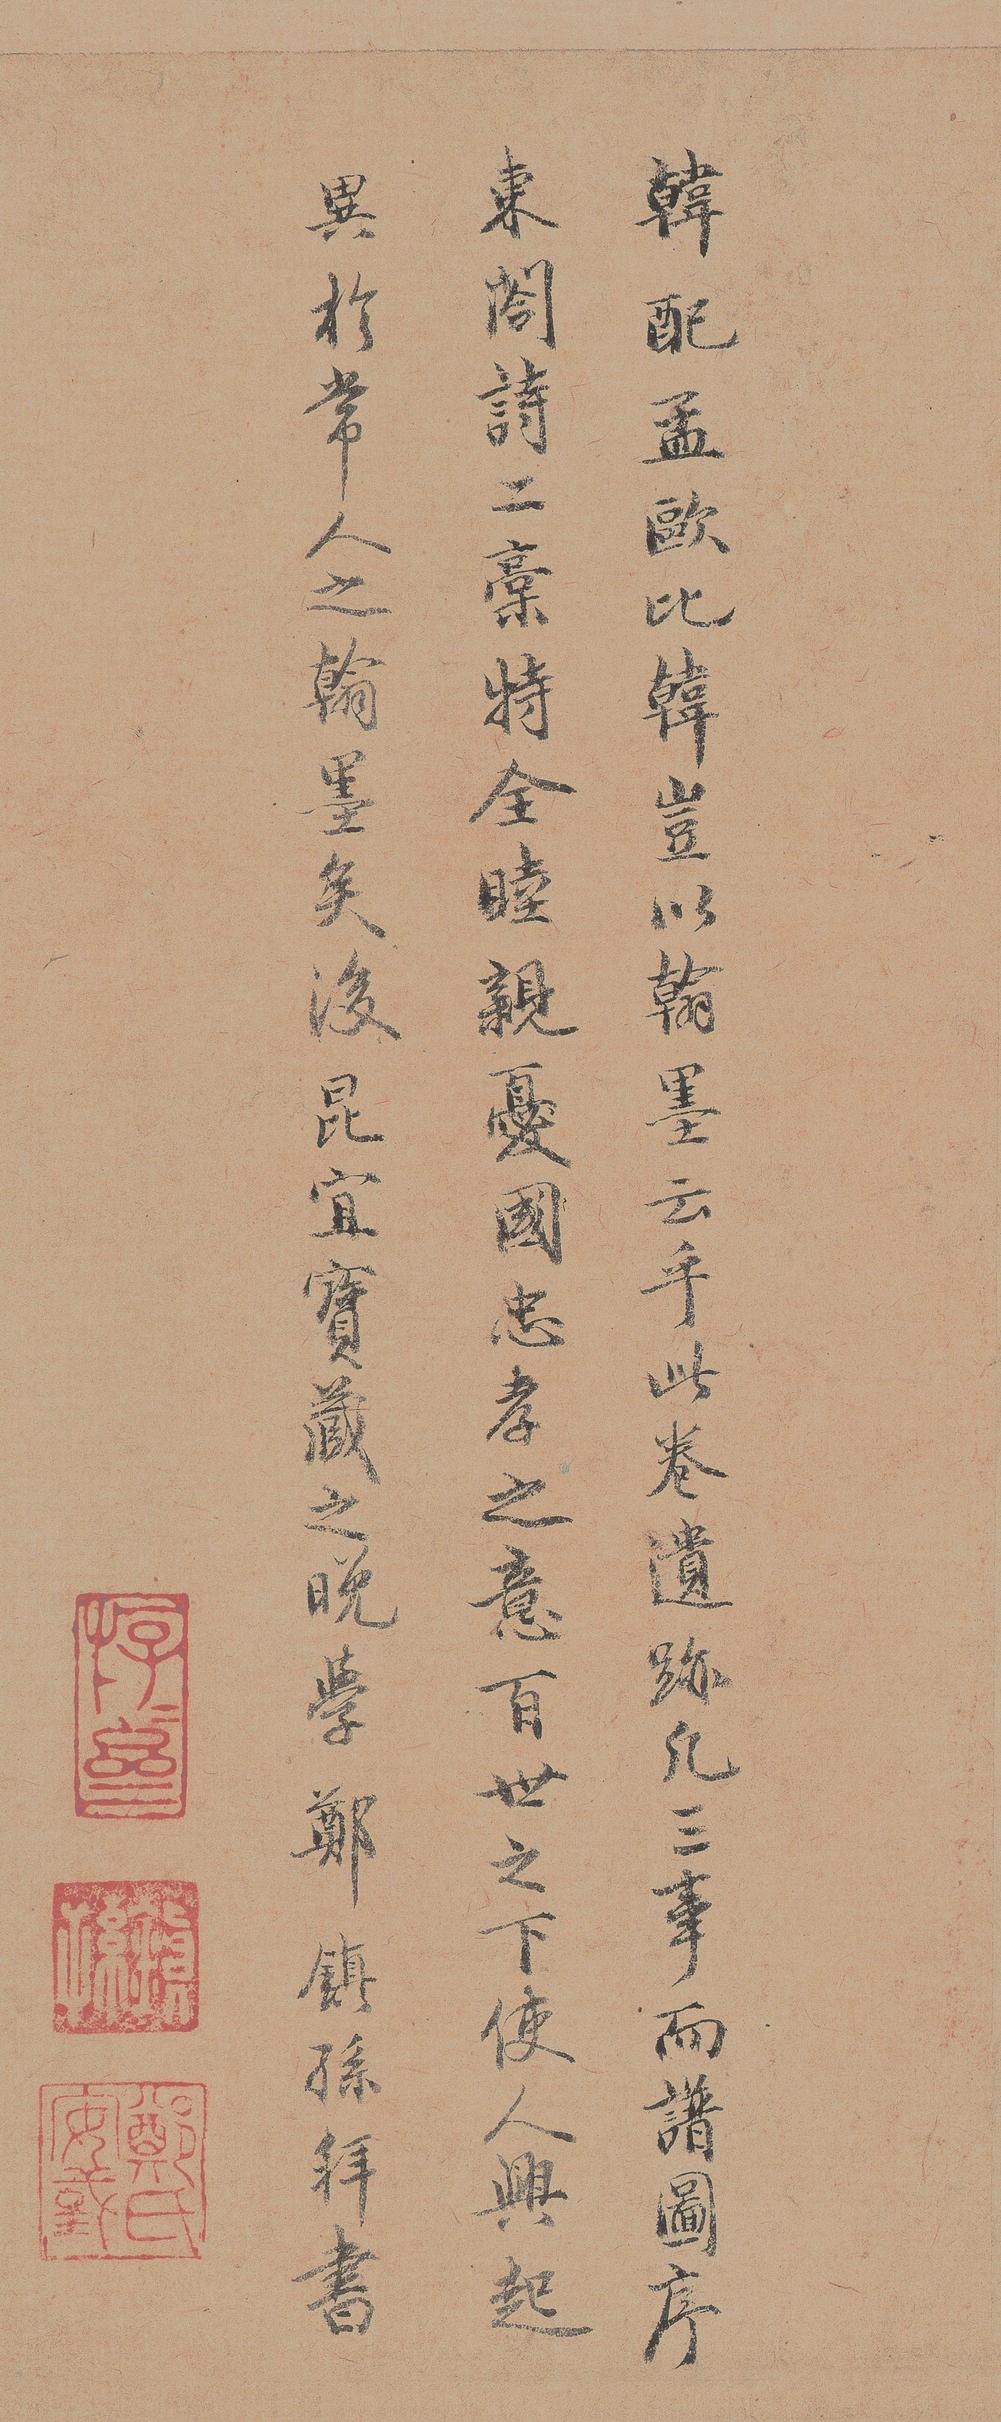 韓配孟歐比韓豈以翰墨云乎此卷遺跡凡三事而譜圖序
東閣詩二稾特全睦親憂國忠孝之意百世之下使人興起
異於常人之翰墨矣後昆宜寶藏之晚學鄭鎮孫拜書
鎮孫
鄭氏安載